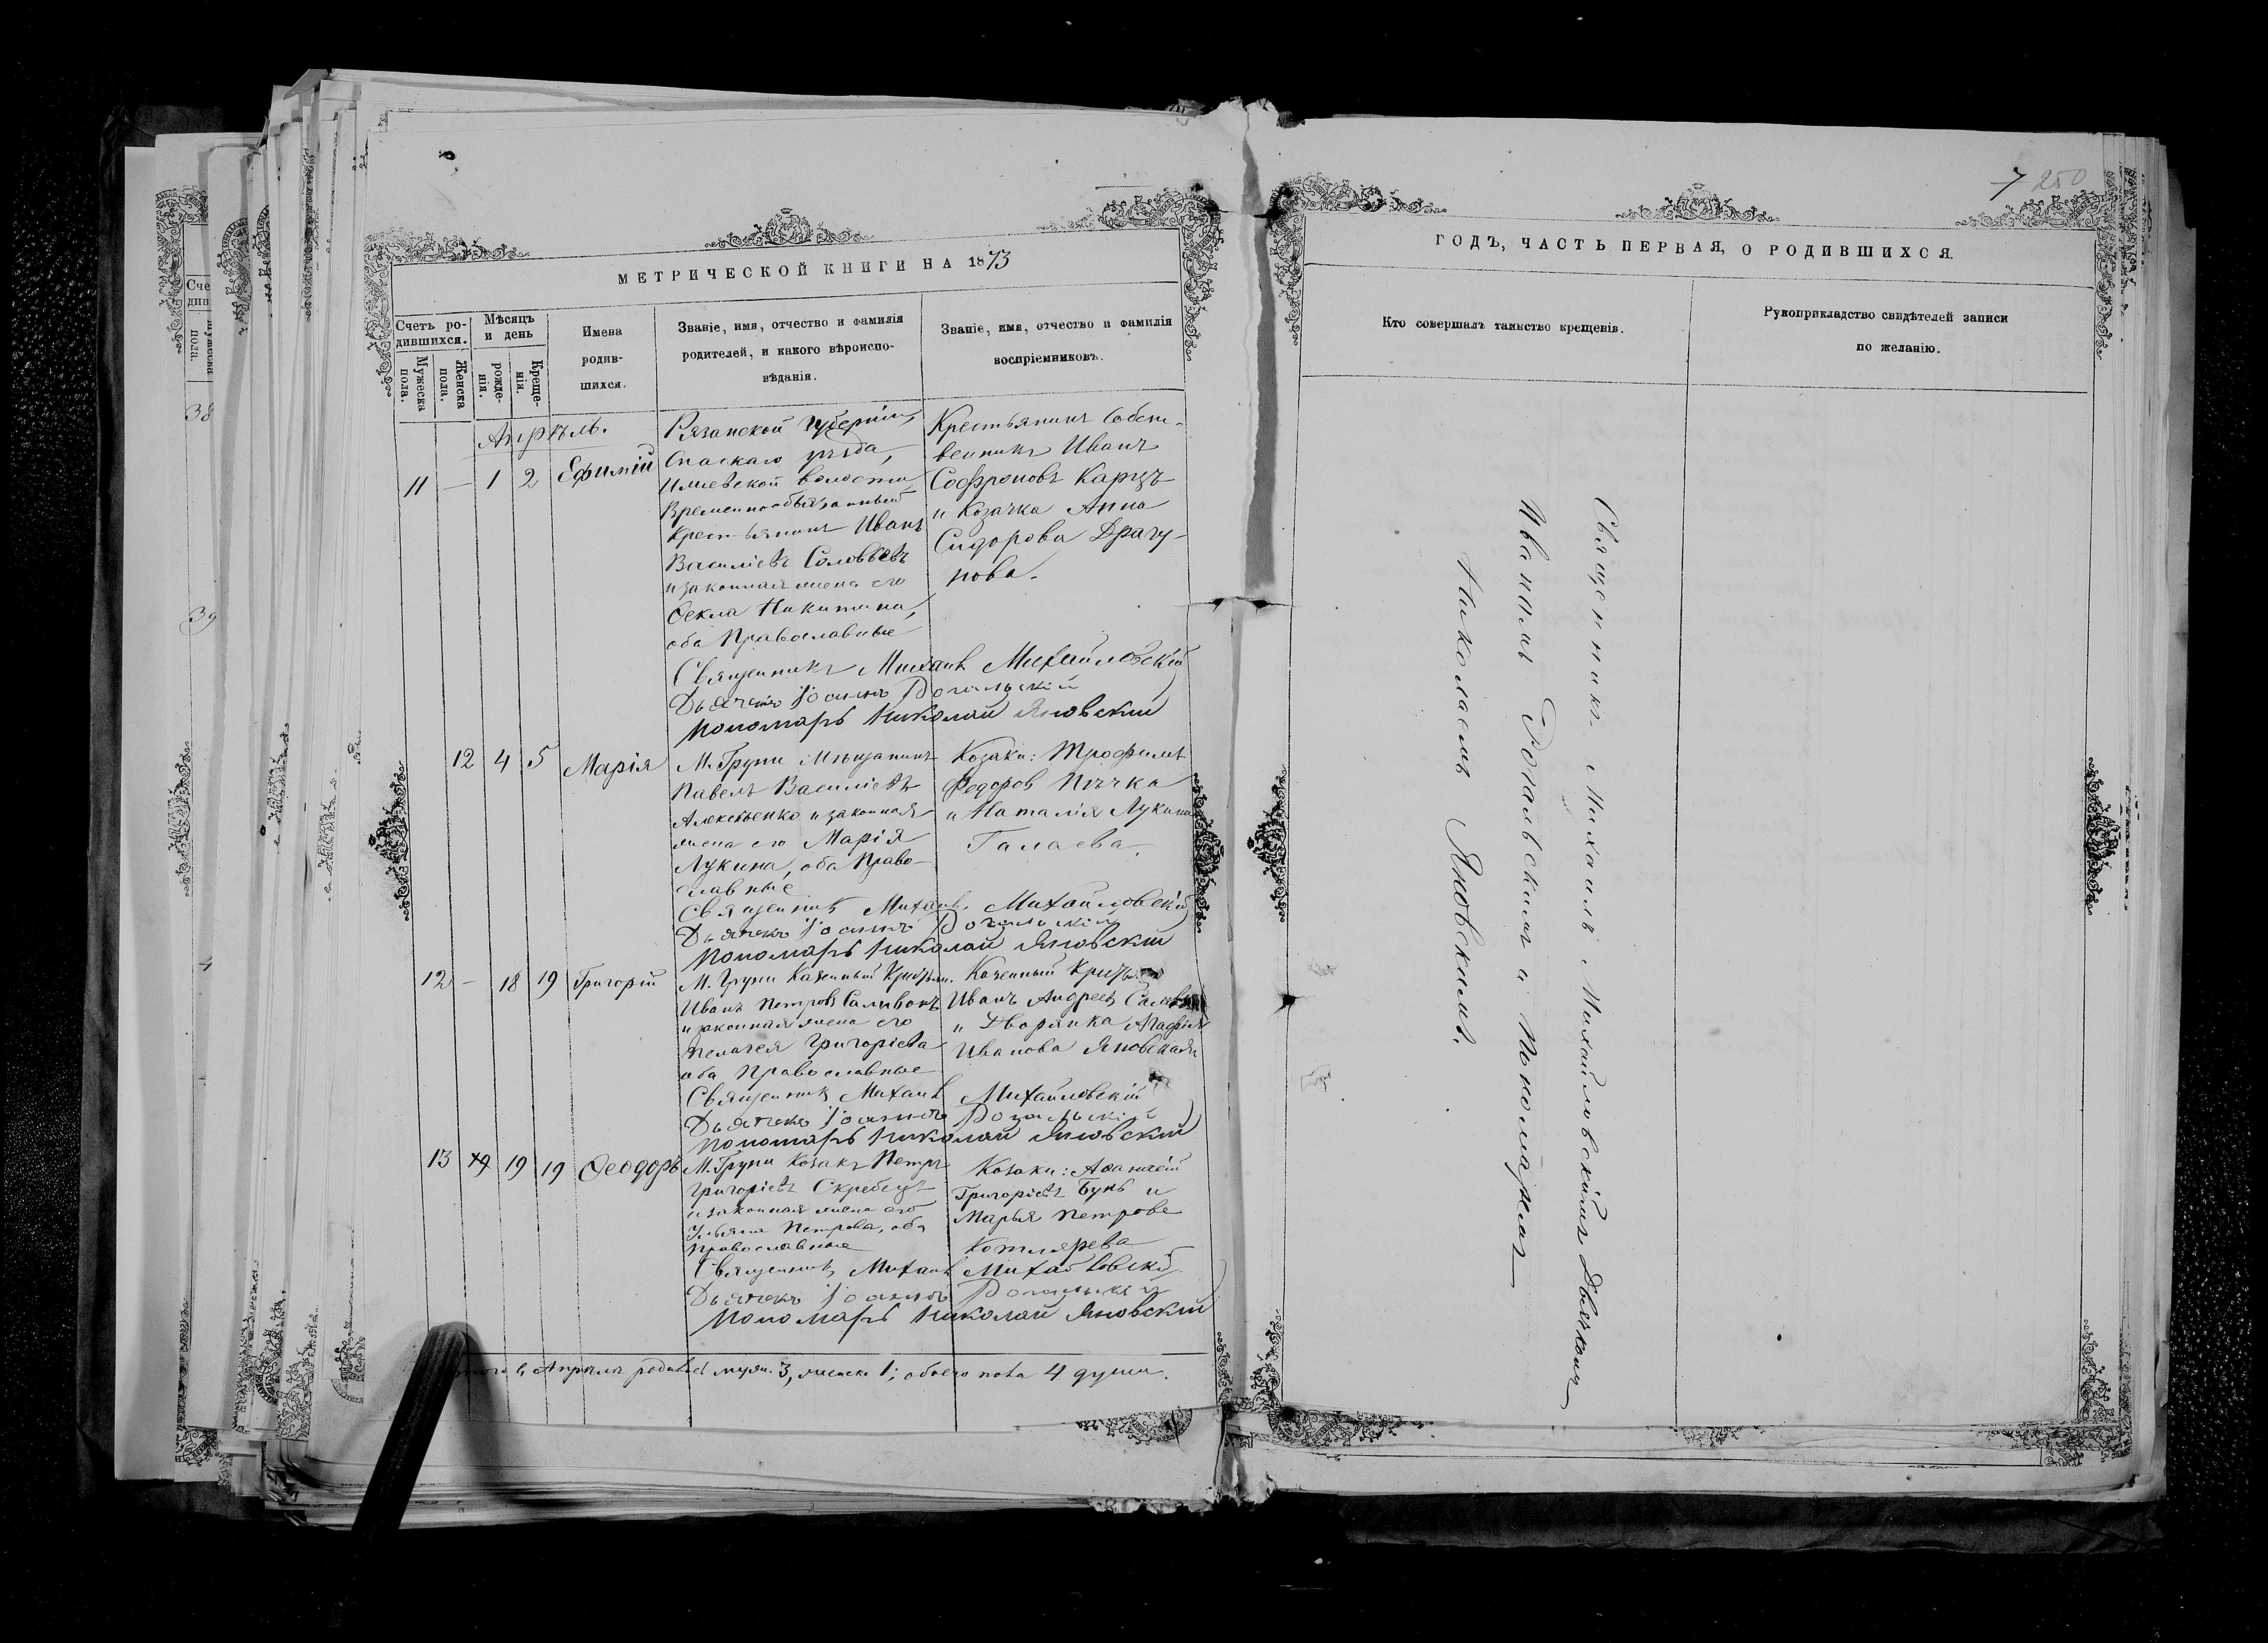 7 250
МЕТРИЧЕСКОЙ КНИГИ НА 1873
ГОДЪ, ЧАСТЬ ПЕРВАЯ, О РОДИВШИХСЯ.
Счетъ ро-
дившихся.
Мужеска пола.
Женска пола.
Мѣсяцъ
и день
рожде-
нія.
Креще-
нія.
Имена
родив-
шихся.
Званіе, имя, отчество и фамилія
родителей, и какого вѣроиспо-
вѣданія.
Званіе, имя, отчество и фамилія
воспріемниковъ.
Кто совершалъ таинство крещенія.
Рукоприкладство свидѣтелей записи
по желанію.
Апрѣль.
11 — 1 2 Ефимій
Рязанской Губерніи,
Спаскаго уѣзда,
волости,
Временнообязанный
Крестьянинъ Иванъ
Василіевъ Соловьевъ
и законная жена его
Ѳекла Никитина,
оба Православные
Крестьянинъ Собст-
венникъ Иванъ
Софроновъ Карпъ
и Козачка Анна
Сидорова Драгу-
нова.
Священникъ Михаилъ Михайловскій
Дьячекъ Іоаннъ Рогальскій
Пономарь Николай Яновский
12 4 5 Марія
М. Груни Мѣщанинъ
Павелъ Василіевъ
Алексѣенко и законная
жена его Марія
Лукина, оба Право-
славные
Козаки: Трофимъ
Федоровъ Пѣчка
и Наталія Лукина
Галаева.
Священникъ Михаилъ Михайловскій
Дьячекъ Іоаннъ Рогальскій
Пономарь Николай Яновский
12 — 18 19 Григорій
М. Груни Казенный
Иванъ Петровъ Саливонъ
и законная жена его
Пелагея Григоріева
оба Православные
Казенный
Иванъ Андреевъ
и Дворянка Агафія
Иванова Яновская
Священникъ Михаилъ Михайловскій
Дьячекъ Іоаннъ Рогальскій
Пономарь Николай Яновский
13 19 19 Ѳеодоръ
М. Груни Козакъ Петръ
Григоріевъ Скребецъ
и законная жена его
Ульяна Петрова, оба
Православные
Козаки: Аѳанасій
Григоріевъ Бунь и
Марья Петрова
Котлярева
Священникъ Михаилъ Михайловскій
Дьячекъ Іоаннъ Рогальскій
Пономарь Николай Яновский
въ Апрѣлѣ муж. 3, женска 1; обоего пола 4 души.
Священникъ Михаилъ Михайловскій съ Дьячкомъ
Иваномъ Рогальскимъ и Пономаремъ
Николаемъ Яновскимъ.
38
39
4